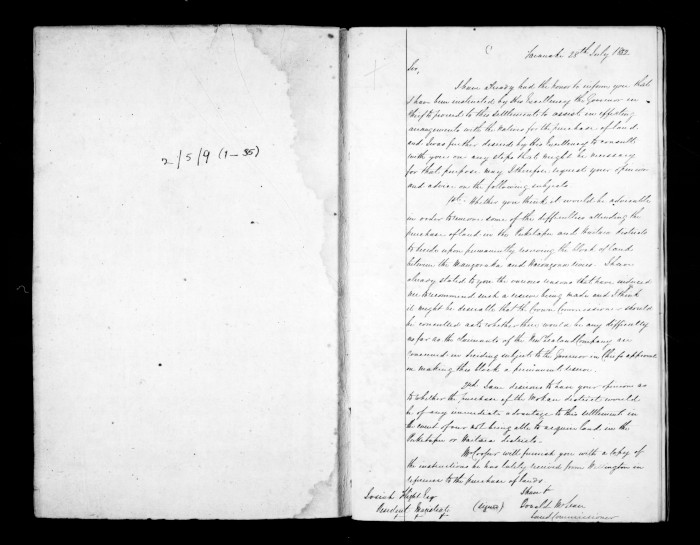 2/5/9 (1-35)
Taranaki 28th July 1852
Sir,
I have already had the honor to inform you that
I have been instructed by His Excellency the Governor in
Chief to proceed to this settlement to assist in effecting
arrangements with the Natives for the purchase of land
and I was further desired by His Excellency to consult
with you on any steps that might be necessary
for that purpose may I therefore request your opinion
and advice on the following subjects
1st. Whether you think it would be advisable
in order to remove some of the difficulties attending the
purchase of land in the Puketapu and Waitara districts
to decide upon permanently reserving the block of land
between the Mangoraka and Waiongana rivers. I have
already stated to you the various reasons that have induced
me to recommend such a reserve being made and I think
it might be desirable that the Crown Commissioner should
be consulted as to whether there would be any difficulty
as far as the servants of the New Zealand Company are
concerned in deciding subject to the Governor in Chiefs approval
on making this block a permanent reserve.
2nd. I am desirous to have your opinion as
to whether the purchase of the Mokau district would
be of any immediate advantage to this settlement in
the event of our not being able to acquire land in the
Puketapu or Waitara districts.
Mr Cooper will furnish you with a Copy of
the instructions he has lately received from Wellington in
reference to the purchase of lands.
I have &c
Josiah Flight Esq
Resident Magistrate
(signed) Donald McLean
Land Commissioner